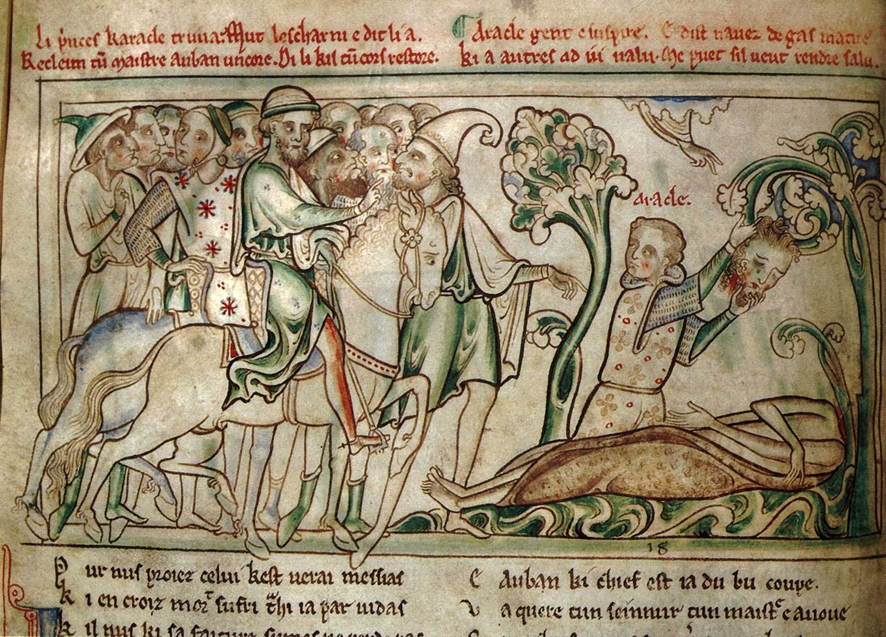 Li p'nces karacle truva. Mut lescharni e dit li a.
Recleim tū maistre Auban uncore. Di li kil tū cors restore.
Aracle gent e suspire. E dist navez de gas matire
ki a autres ad valu. Me puet sil veut rendre salu.
aracle.
18
Pur nus priez celui kest verai messias
ki en croiz sufri ia par iudas
kil nus ki sa faiture sumes ne
E Auban ki chief est ia du bu coupe.
va quere tun seinnur tun maist'e e avoue